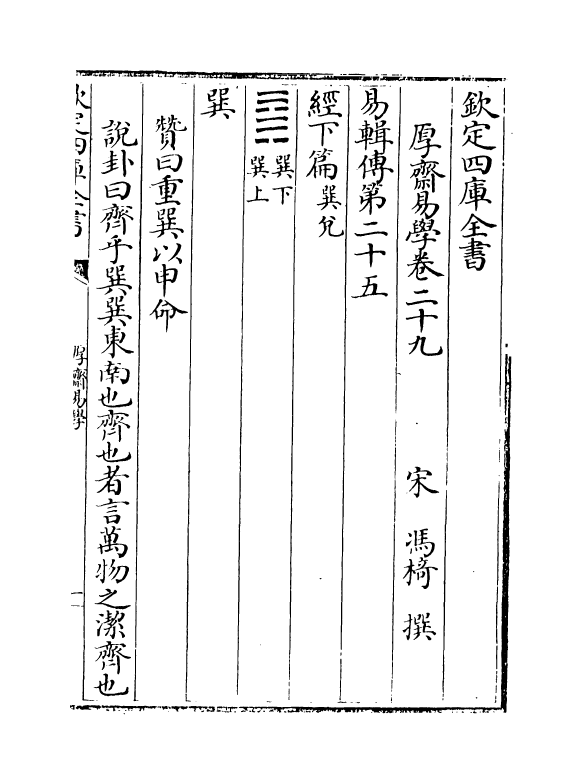 欽定四庫全書
厚齋易學卷二十九　　宋　馮椅　撰
易輯傳第二十五
經下篇 巽兌
䷸ 巽下
巽上
巽
贊曰重巽以申命
說卦曰齊乎巽巽東南也齊也者言萬物之潔齊也
欽定四庫全書
厚齋易學
一